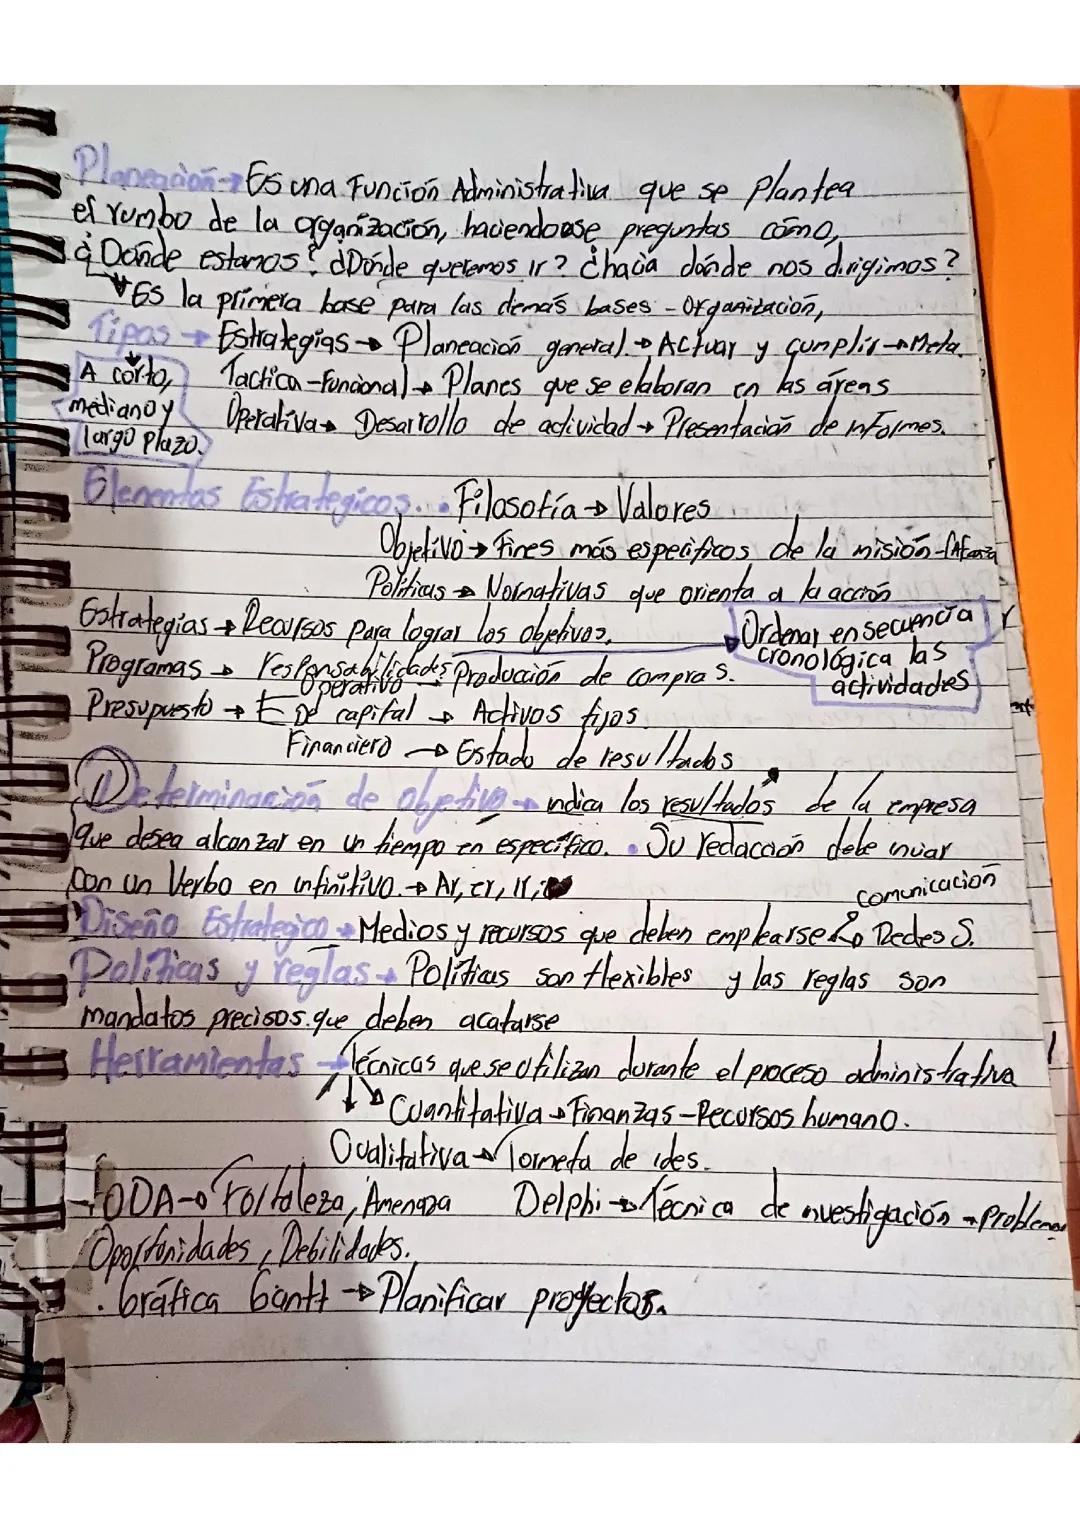 Planeación → Es una Función Administrativa que se Plantea
el rumbo de la organización, haciendose preguntas cómo,
¿Dónde estamos? ¿Dónde queremos ir? ¿hacia dónde nos dirigimos?
Es la primera base para las demás bases - Organización,
Tipos → Estrategias → Planeación general. → Actuar y cumplir → Meta.
A corto, Tactica - Funcional → Planes que se elaboran en las áreas
mediano y Operativa → Desarrollo de actividad → Presentación de informes.
largo plazo.
Elementos Estrategicos. . • Filosofía → Valores
Objetivo → Fines más especificos de la misión
Políticas → Normativas que orienta a la acción
Estrategias → Recursos para lograr los objetivos. Ordenar en secuencia
Programas → responsabilidades Producción de compras. cronológica las
Operativo → actividades
Presupuesto → De capital → Activos fijos
Financiero → Estado de resultados
Determinación de objetivo → indica los resultados de la empresa
que desea alcanzar en un tiempo en específico. • Su redacción debe iniciar
con un Verbo en infinitivo. → Ar, er, ir,
comunicación
Diseño Estrategico → Medios y recursos que deben emplearse → Redes S.
Políticas y reglas → Políticas son flexibles y las reglas son
mandatos precisos. que deben acatarse
Herramientas → Técnicas que se utilizan durante el proceso administrativa
Cuantitativa → Finanzas - Recursos humano.
Cualitativa → Tormeta de ides.
FODA → Fortaleza, Amenaza Delphi → Técnica de nvestigación → Problemas
Oportunidades, Debilidades.
. Gráfica Gantt → Planificar proyectos.